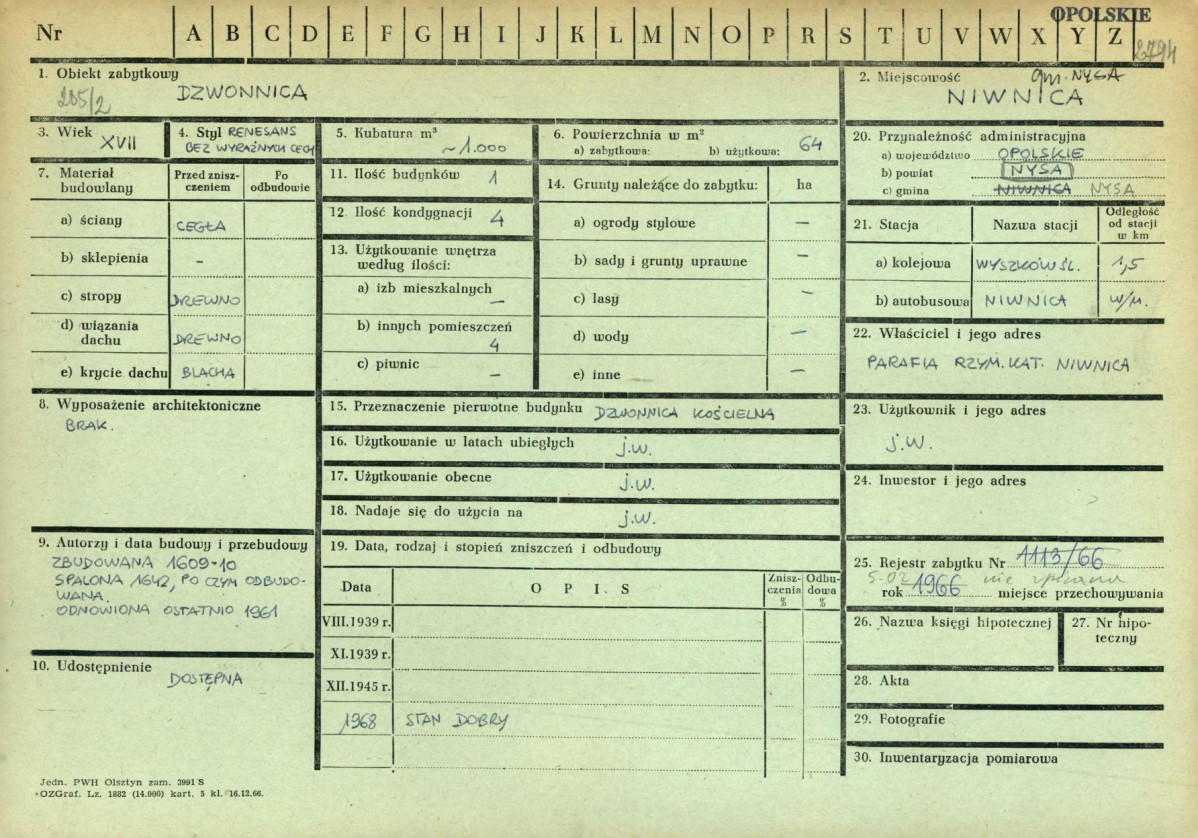 OPOLSKIE
Nr A B C D E F G H I J K L M N O P R S T U V W X Y Z
2794
1. Obiekt zabytkowy
285/2 DZWONNICA
2. Miejscowość gm. NYSA
NIWNICA
3. Wiek XVII
4. Styl RENESANS
BEZ WYRAŹNYCH CECH
5. Kubatura m³
~1.000
6. Powierzchnia w m²
a) zabytkowa: b) użytkowa: 64
7. Materiał budowlany
Przed znisz-czeniem
Po odbudowie
a) ściany CEGŁA
b) sklepienia -
c) stropy DREWNO
d) wiązania dachu DREWNO
e) krycie dachu BLACHA
8. Wyposażenie architektoniczne
BRAK.
9. Autorzy i data budowy i przebudowy
ZBUDOWANA 1609-10
SPALONA 1642, PO CZYM ODBUDO-
WANA.
ODNOWIONA OSTATNIO 1961
10. Udostępnienie
DOSTĘPNA
11. Ilość budynków 1
12. Ilość kondygnacji 4
13. Użytkowanie wnętrza
według ilości:
a) izb mieszkalnych
–
b) innych pomieszczeń
4
c) piwnic –
14. Grunty należące do zabytku: ha
a) ogrody stylowe –
b) sady i grunty uprawne –
c) lasy –
d) wody –
e) inne –
15. Przeznaczenie pierwotne budynku DZWONNICA KOŚCIELNA
16. Użytkowanie w latach ubiegłych j.w.
17. Użytkowanie obecne j.w.
18. Nadaje się do użycia na j.w.
19. Data, rodzaj i stopień zniszczeń i odbudowy
Data O P I S Znisz-czenia % Odbu-dowa %
VIII.1939 r.
XI.1939 r.
XII.1945 r.
1968 STAN DOBRY
20. Przynależność administracyjna
a) województwo OPOLSKIE
b) powiat NYSA
c) gmina NIWNICA NYSA
21. Stacja Nazwa stacji Odległość od stacji w km
a) kolejowa WYSZKÓW ŚL. 1,5
b) autobusowa NIWNICA w/m.
22. Właściciel i jego adres
PARAFIA RZYM. KAT. NIWNICA
23. Użytkownik i jego adres
j.w.
24. Inwestor i jego adres
25. Rejestr zabytku Nr 1113/66
5.02 nie
rok 1966 miejsce przechowywania
26. Nazwa księgi hipotecznej
27. Nr hipo-
teczny
28. Akta
29. Fotografie
30. Inwentaryzacja pomiarowa
Jedn. PWH Olsztyn zam. 3991 S
OZGraf. Lz. 1882 (14.000) kart. 5 kl. 16.12.66.